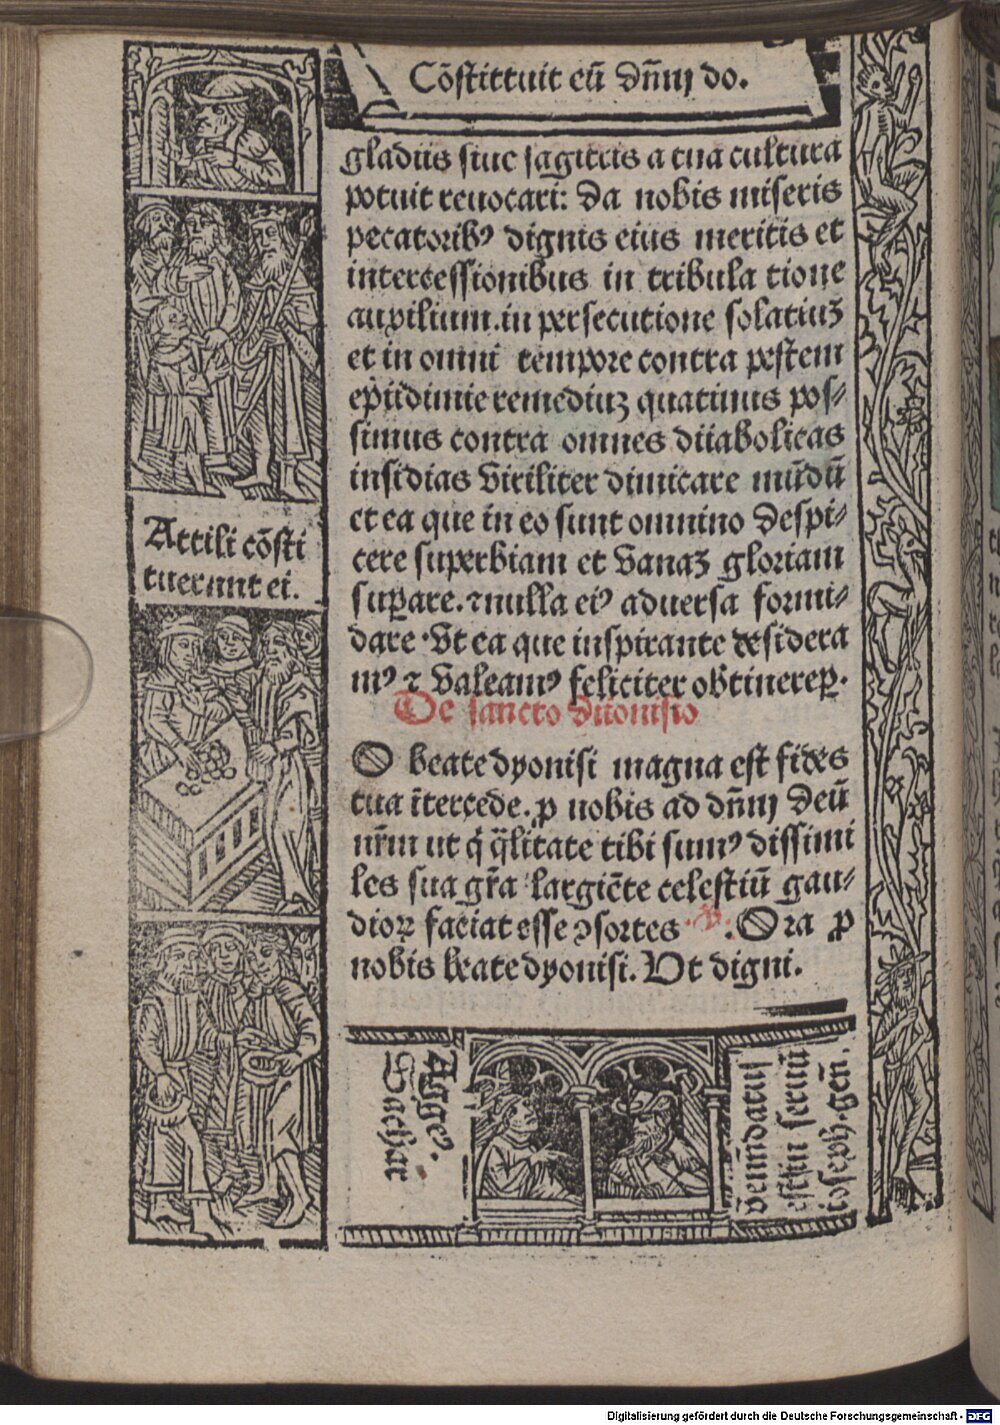 Cõstituit eũ dñm do.
gladiis siue sagittis a tua cultura
potuit reuocari: da nobis miseris
pecatoribꝰ dignis eius meritis et
intercessionibus in tribula tione
auxilium. in persecutione solatiuꝫ
et in omni tempore contra pestem
epiidimie remediuꝫ quatinus pos⸗
simus contra omnes diiabolicas
insidias viriliter dimicare mũdũ
et ea que in eo sunt omnino despi⸗
cere superbiam et vanaꝫ gloriam
suꝑare. ⁊ nulla eiꝰ aduersa formi⸗
dare. Vt ea que inspirante desidera
mꝰ ⁊ valeamꝰ feliciter obtinereꝑ.
De sancto diionisio
O beate dyonisi magna est fides
tua ĩtercede. ꝓ nobis ad dñm deũ
nr̃m ut q́ q̃litate tibi sumꝰ dissimi
les sua gr̃a largiẽte celestiũ gau⸗
dioꝝ faciat esse ꝯsortes. ℣. Ora ꝓ
nobis beate dyonisi. Vt digni.
Attili cõsti
tuerunt ei.
Aggeꝰ.
Sachar
venũdatus
est in seruũ
ioseph. geñ.
Digitalisierung gefördert durch die Deutsche Forschungsgemeinschaft - DFG